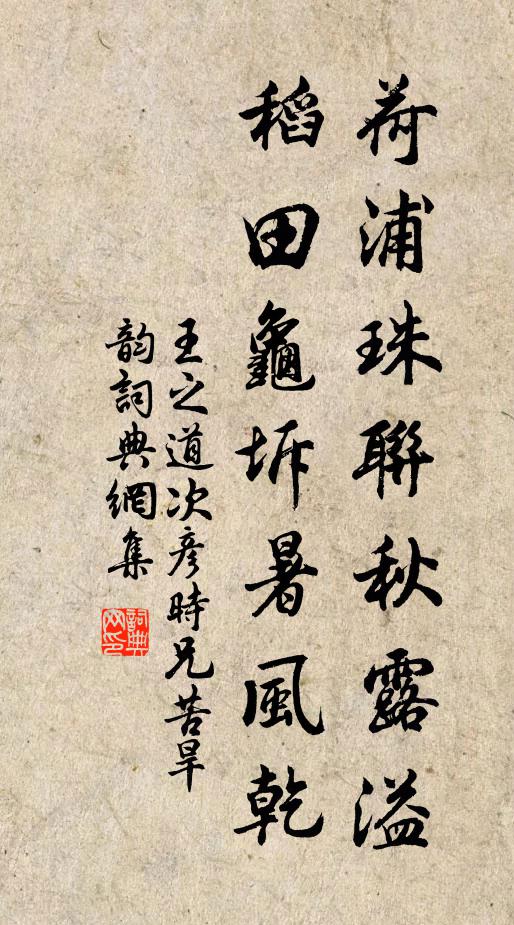 荷浦珠聯秋露溢
稻田龜坼暑風乾
王之道次彥時兄苦旱
韵詞典網集
詞典網印